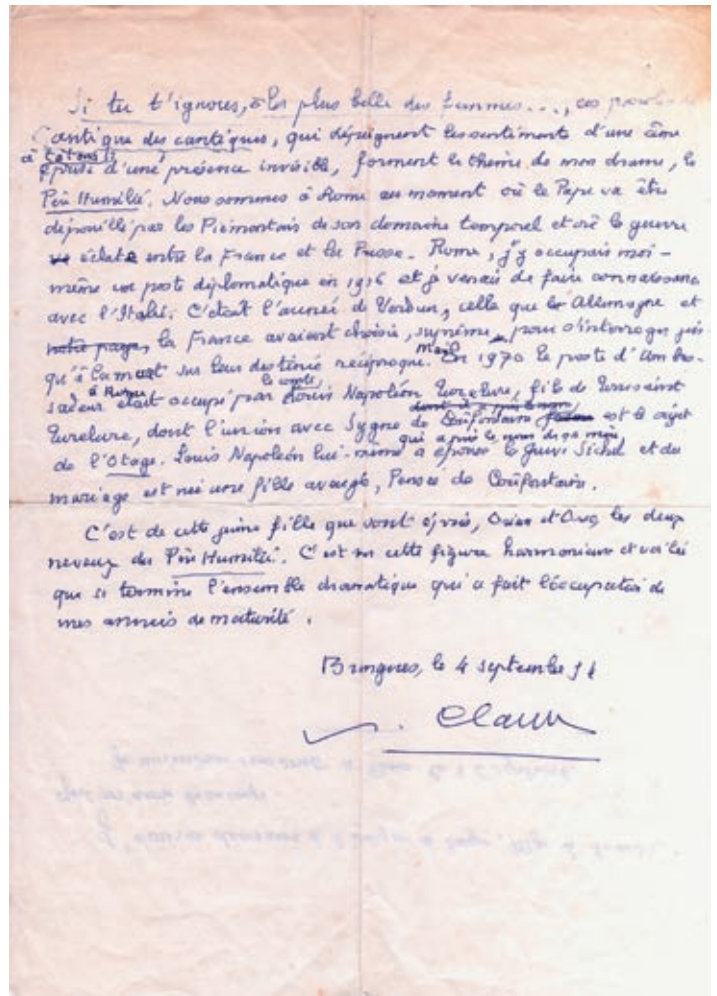 Si tu t'ignores, ô la plus belle des femmes..., ces
Cantique des cantiques, qui dépeignent les sentiments d'une âme
à tâtons
éprise d'une présence invisible, forment le thème de mon drame, le
Père Humilié. Nous sommes à Rome au moment où le Pape va être
dépouillé par les Piémontais de son domaine temporel et où la guerre
éclate entre la France et la Prusse. Rome, j'y occupais moi-
même un poste diplomatique en 1916 et je venais de faire connaissance
avec l'Italie. C'était l'année de Verdun, celle que l'Allemagne et
notre pays, la France avaient choisie, suprême, pour s'interroger jus
qu'à la mort sur leur destinée réciproque. Mais En 1970 le poste d'Ambas-
sadeur à Rome était occupé par le comte Louis Napoléon Turelure, fils de Toussaint
Turelure, dont l'union avec Sygne de Coûfontaine est le sujet
qui a pris le nom de sa mère
de l'Otage. Louis Napoléon lui-même a épousé la Juive Sichel et du
mariage est née une fille aveugle, Pensée de Coûfontaine.
C'est de cette jeune fille que sont épris, Orian et Orso, les deux
neveux du Père Humilié. C'est sur cette figure harmonieuse et voilée
que se termine l'ensemble dramatique qui a fait l'occupation de
mes années de maturité.
Brangues, le 4 septembre
Claudel